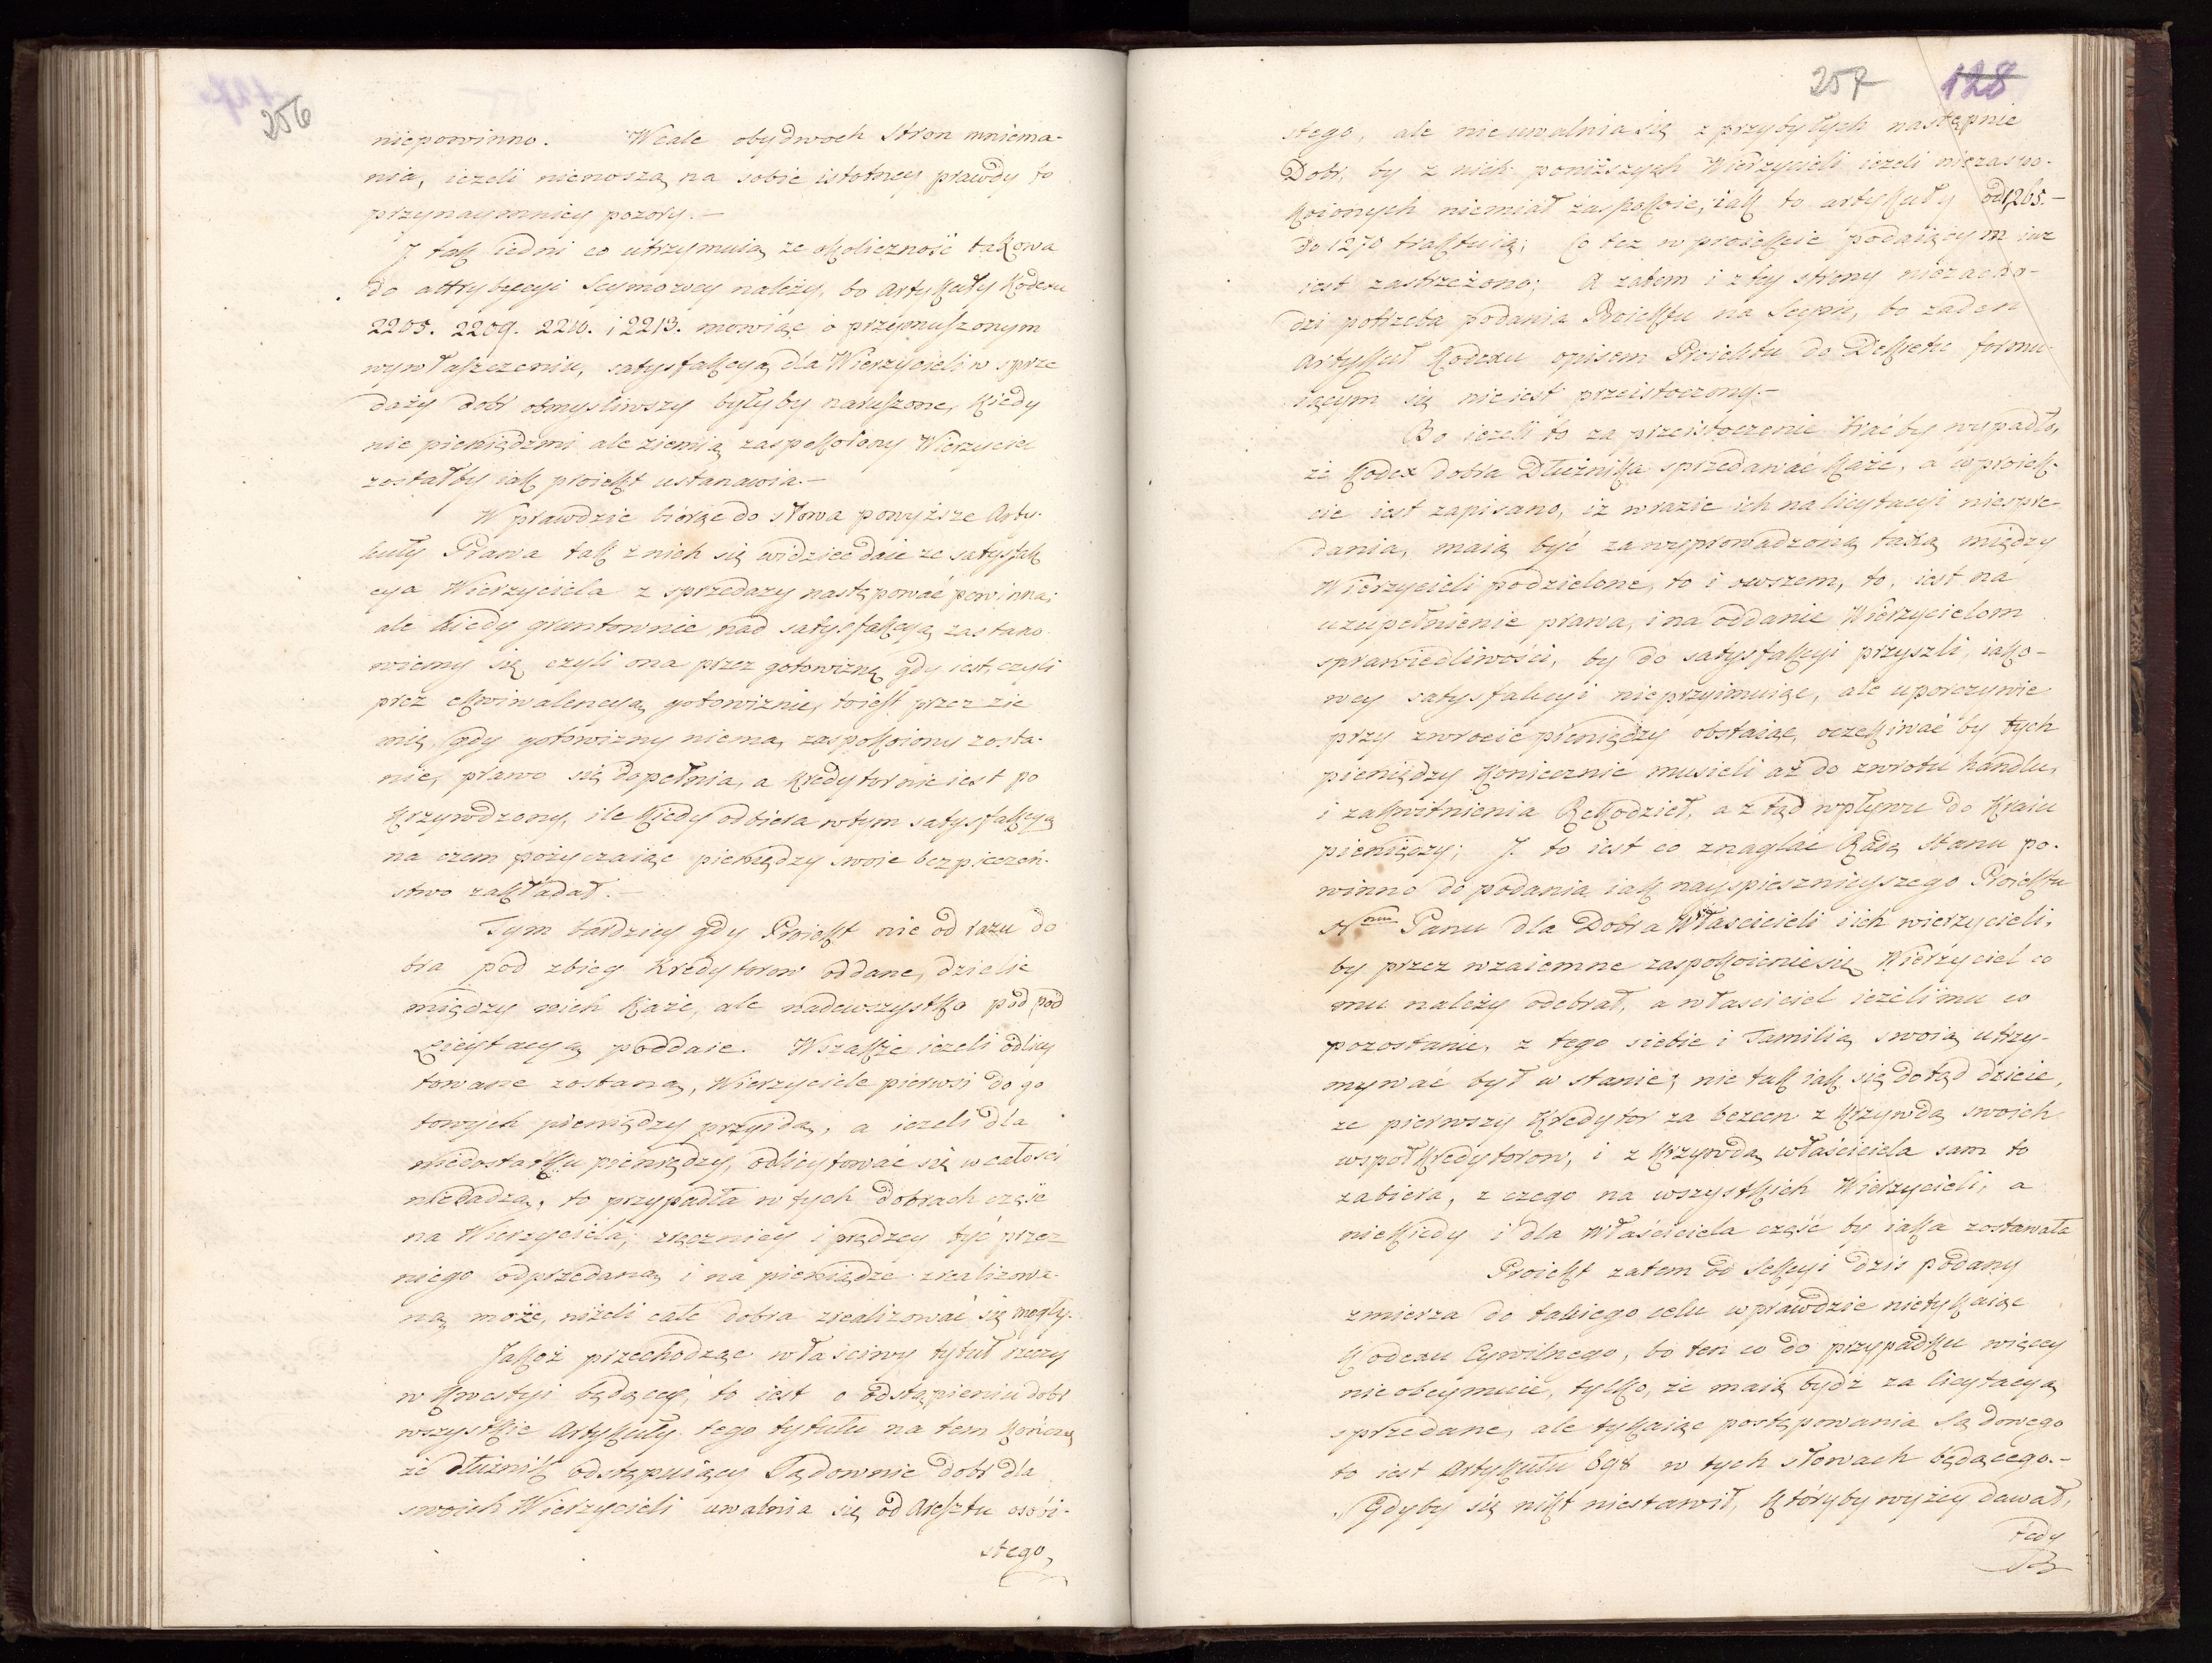 256
niepowinno. Wcale obydwoch stron mniema-
nia, iezeli nienoszą na sobie istotney prawdy to
przynaymniey pozory.-
J tak iedni co utrzymuią ze okoliczność takowa
do attrybucyi Seymowey należy, bo Artykuły Kodexu
2205. 2209. 2210. i 2213. mowiąc o przymuszonym
wywłaszczeniu, satysfakcyą dla Wierzycieli w sprze
daży dobr obmysliwszy byłyby naruszone, kiedy
nie pieniędzmi ale ziemią zaspokoiony Wierzyciel
zostałby iak proiekt ustanawia.-
W prawdzie biorąc do słowa powyższe Arty-
kuły Prawa tak z nich się widzieć daie ze satysfak
cya Wierzyciela z sprzedazy następować powinna;
ale kiedy gruntownie nad satysfakcyą zastano
wiemy się czyli ona przez gotowiznę gdy iest, czyli
prez ekwiwalencyą gotowizny, toiest przez zie
mię, gdy gotowizny niema, zaspokoiony zosta-
nie, prawo się dopełnia, a kredytor nie iest po
krzywdzony, ile kiedy odbiera w tym satysfakcyą
na czem pożyczaiąc pieniędzy swoie bezpieczeń-
stwo zakładał.-
Tym bardziey gdy Proiekt nie od razu do
bra pod zbieg Kredytorow oddane, dzielić
między nich każe, ale nadewszystko pod pod
Licytacyą poddaie. Wszakże iezeli odlicy
towane zostaną, Wierzyciele pierwsi do go
towych pieniędzy przyidą, a iezeli dla
niedostatku pieniędzy, odlicytować się w całości
niedadzą, to przypadła w tych dobrach część
na Wierzyciela, zręczniey i prędzey być przez
niego odprzedaną i na pieniądze zrealizowa-
ną może, niżeli całe dobra zrealizować się mogły.
Jakoż przechodząc właściwy tytuł rzeczy
w kwestyi będącey, to iest o odstąpieniu dobr
wszystkie Artykuły tego tytułu na tem kończą
że dłużnik odstępuiący Sądownie dobr dla
swoich Wierzycieli uwalnia się od Aresztu osobi-
stego,
257 128
stego, ale nie uwalnia się z przybyłych następnie
Dobr, by z nich poniższych Wierzycieli iezeli niezaspo-
koionych niemiał zaspokoić, iak to artykuły od 1265.-
do 1270 traktuią; Co tez w proiekcie podaiącym iuz
iest zastrzeżono; A zatem i z tey strony niezacho-
dzi potrzeba podania Proiektu na Seym, bo zaden
Artykuł Kodexu opisem Proiektu do Dekretu formu-
iącym się nie iest przeistoczony.-
Bo iezeli to za przeistoczenie brać by wypadło,
że Kodex dobra Dłużnika sprzedawać każe, a w proiek-
cie iest zapisano, iż w razie ich na licytacyi niesprze-
dania, maią być za wyprowadzoną taxą między
Wierzycieli podzielone, to i owszem, to, iest na
uzupełnienie prawa, i na oddanie Wierzycielom
sprawiedliwości, by do satysfakcyi przyszli, iako-
wey satysfakcyi nieprzyimuiąc, ale uporczywie
przy zwrocie pieniędzy obstaiąc, oczekiwać by tych
pieniędzy koniecznie musieli aż do zwrotu handlu,
i zakwitnienia Rękodzieł, a z tąd wpływu do Kraiu
pieniędzy; J. to iest co znaglać Radę Stanu po-
winno do podania iak nayspiesznieyszego Proiektu
Nemu Panu dla Dobra Właścicieli i ich wierzycieli,
by przez wzaiemne zaspokoienie się Wierzyciel co
mu należy odebrał, a właściciel ieżeli mu co
pozostanie, z tego siebie i Familią swoią utrzy-
mywać był w stanie; nie tak iak się dotąd dzieie,
ze pierwszy Kredytor za bezcen z krzywdą swoich
współkredytorow, i z krzywdą właściciela sam to
zabiera, z czego na wszystkich Wierzycieli, a
niekiedy i dla Właściciela część by iaka zostawała
Proiekt zatem od Sekcyi dziś podany
zmierza do takiego celu wprawdzie nietykaiąc
Kodexu Cywilnego, bo ten co do przypadku więcey
nieobeymuie, tylko, że maią bydź za licytacyą
sprzedane, ale tykaiąc postępowania Sądowego
to iest Artykułu 698 w tych słowach będącego.-
Gdyby się nikt niestawił, któryby wyżey dawał,
tedy